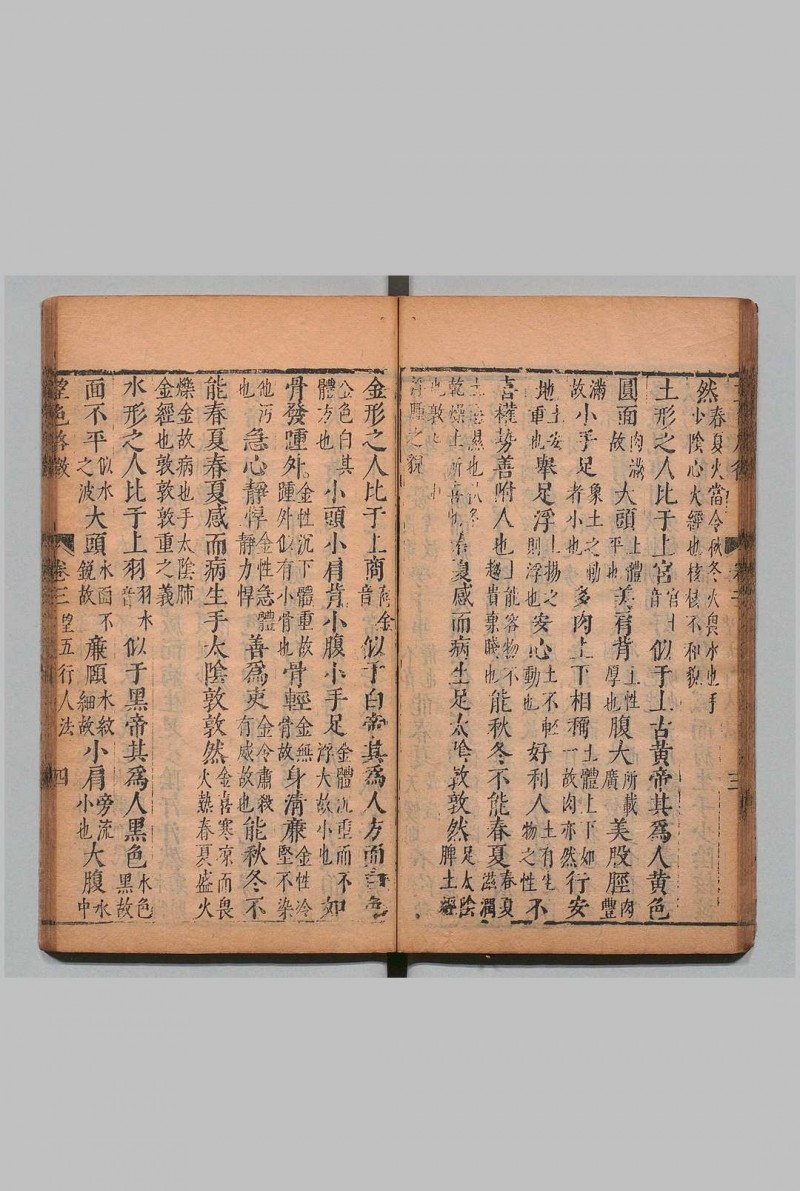 然春夏火當令秋冬火畏水也手少陰心火經也核核不和貌
土形之人比于上宮宮土音似于上古黃帝其爲人黃色
圓面肉滿故大頭上體平也美肩背土性厚也腹大所載廣美股脛肉豐
滿故小手足象土之動者小也多肉上下相稱土體上下如一故肉亦然行安
土安地重也舉足浮土揚之則浮也安心土不輕動也好利人土有生物之性不
喜權勢善附人也土能容物不趨貴棄賤也能秋冬不能春夏春夏滋潤
濕也秋冬乾燥土所喜春夏感而病生足太陰敦敦然足太陰脾土經
也敦浮腫之貌
三
金形之人比于上商商金音似于白帝其爲人方面白色
金色白其體方也小頭小肩背小腹小手足金體沉重而不浮大故小也如
骨發踵外金性沉下體重故踵外似有小骨也骨輕金無骨故身清廉金性冷堅不染
他污也急心靜悍金性急體靜力悍善爲吏金令肅殺有威故也能秋冬不
能春夏春夏感而病生手太陰敦敦然金喜寒凉而畏火熱春夏盛火
爍金故病也手太陰肺金經也敦敦敦重之義
水形之人比于上羽羽水音似于黑帝其爲人黑色水色黑故
面不平似水之波大頭水面不銳故廉頤水紋細故小肩旁流小也大腹水中
望色啓微 卷三 望五行人法 四